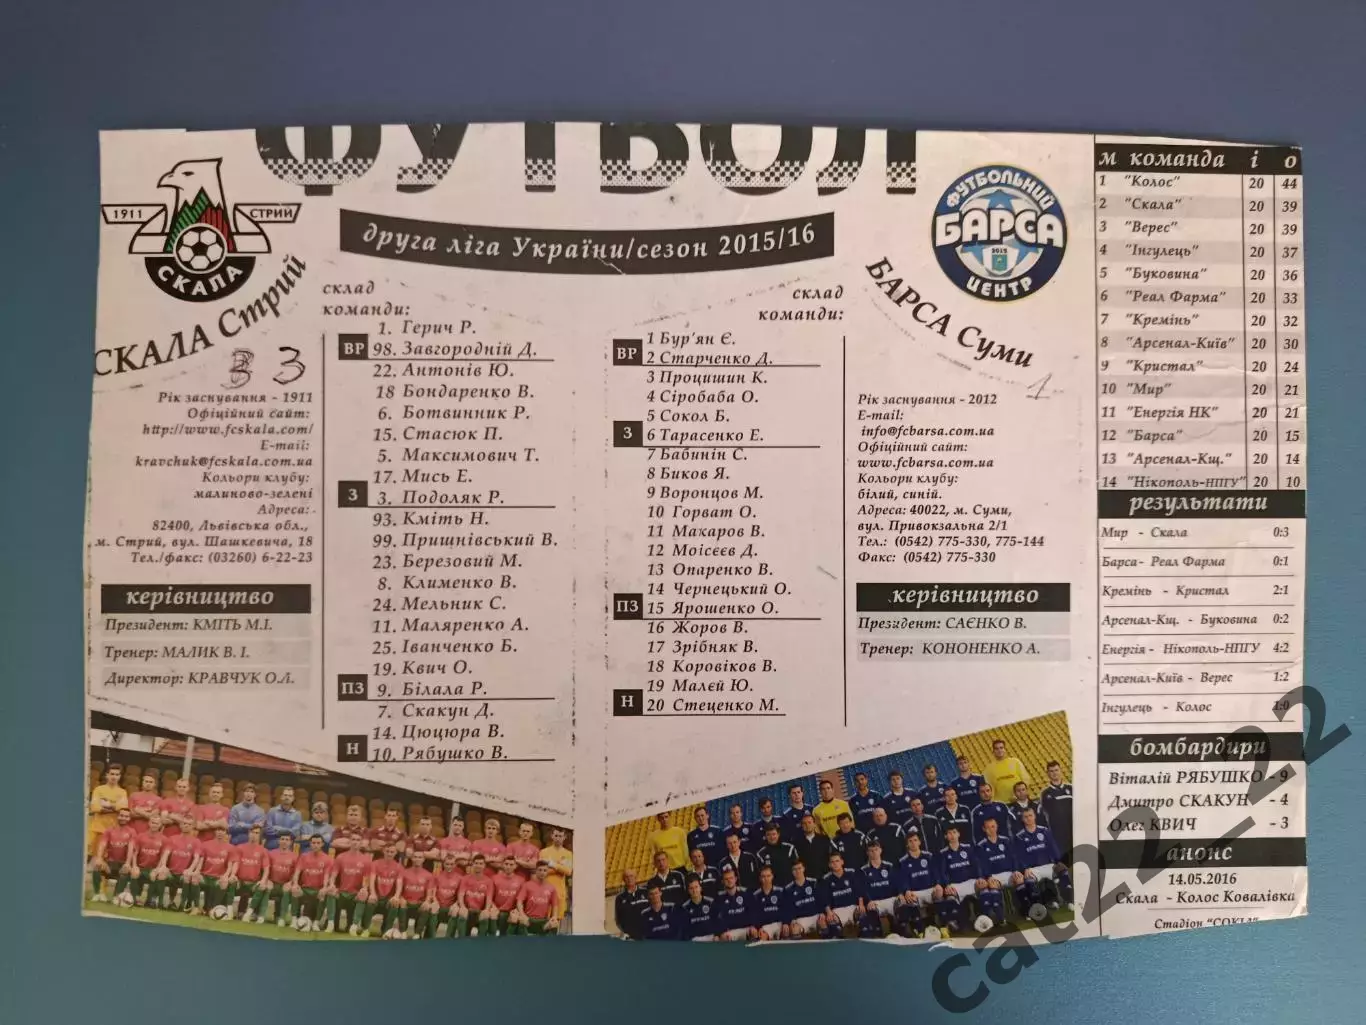 ФУТБОЛ
друга ліга України/сезон 2015/16
1911
СТРИЙ
СКАЛА
СКАЛА Стрий
3 3
Рік заснування - 1911
Офіційний сайт:
http://www.fcskala.com/
E-mail:
kravchuk@fcskala.com.ua
Кольори клубу:
малиново-зелені
Адреса:
82400, Львівська обл.,
м. Стрий, вул. Шашкевича, 18
Тел./факс: (03260) 6-22-23
керівництво
Президент: КМІТЬ М.І.
Тренер: МАЛИК В. І.
Директор: КРАВЧУК О.Л.
склад
команди:
1. Герич Р.
ВР 98. Завгородній Д.
22. Антонів Ю.
18 Бондаренко В.
6. Ботвинник Р.
15. Стасюк П.
5. Максимович Т.
17. Мись Е.
З 3. Подоляк Р.
93. Кміть Н.
99. Прищнівський В.
23. Березовий М.
8. Клименко В.
24. Мельник С.
11. Маляренко А.
25. Іванченко Б.
19. Квич О.
ПЗ 9. Білала Р.
7. Скакун Д.
14. Цюцюра В.
Н 10. Рябушко В.
склад
команди:
1 Бур'ян Є.
ВР 2 Старченко Д.
3 Процишин К.
4 Сіробаба О.
5 Сокол Б.
З 6 Тарасенко Е.
7 Бабинін С.
8 Биков Я.
9 Воронцов М.
10 Горват О.
11 Макаров В.
12 Моісєєв Д.
13 Опаренко В.
14 Чернецький О.
ПЗ 15 Ярошенко О.
16 Жоров В.
17 Зрібняк В.
18 Коровіков В.
19 Малєй Ю.
Н 20 Стеценко М.
ФУТБОЛЬНИЙ
БАРСА
2012
ЦЕНТР
БАРСА Суми
1
Рік заснування - 2012
E-mail:
info@fcbarsa.com.ua
Офіційний сайт:
www.fcbarsa.com.ua
Кольори клубу:
білий, синій.
Адреса: 40022, м. Суми,
вул. Привокзальна 2/1
Тел.: (0542) 775-330, 775-144
Факс: (0542) 775-330
керівництво
Президент: САЄНКО В.
Тренер: КОНОНЕНКО А.
м команда і о
1 "Колос" 20 44
2 "Скала" 20 39
3 "Верес" 20 39
4 "Інгулець" 20 37
5 "Буковина" 20 36
6 "Реал Фарма" 20 33
7 "Кремінь" 20 32
8 "Арсенал-Київ" 20 30
9 "Кристал" 20 24
10 "Мир" 20 21
11 "Енергія НК" 20 21
12 "Барса" 20 15
13 "Арсенал-Кщ." 20 14
14 "Нікополь-НПГУ" 20 10
результати
Мир - Скала 0:3
Барса- Реал Фарма 0:1
Кремінь - Кристал 2:1
Арсенал-Кщ. - Буковина 0:2
Енергія - Нікополь-НПГУ 4:2
Арсенал-Київ - Верес 1:2
Інгулець - Колос 1:0
бомбардири
Віталій РЯБУШКО - 9
Дмитро СКАКУН - 4
Олег КВИЧ - 3
анонс
14.05.2016
Скала - Колос Ковалівка
Стадіон "СОКІЛ"
cat22_22